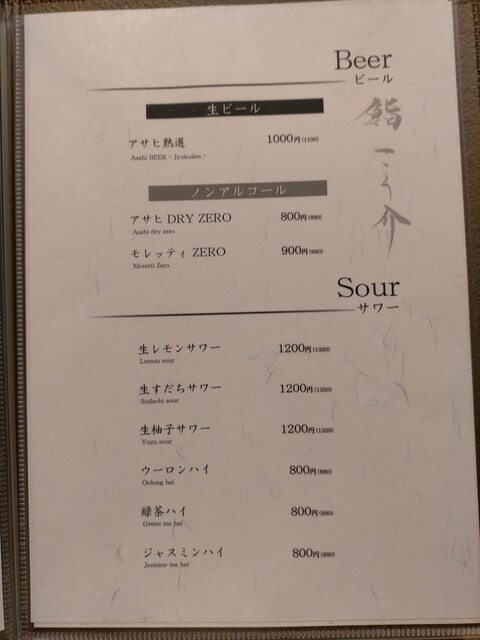 Beer
ビール
生ビール
アサヒ熟選 1000円(1100)
Asahi BEER - Jyukusen -
ノンアルコール
アサヒ DRY ZERO 800円(880)
Asahi dry zero
モレッティ ZERO 900円(990)
Moretti Zero
鮨 こう介
Sour
サワー
生レモンサワー 1200円(1320)
Lemon sour
生すだちサワー 1200円(1320)
Sudachi sour
生柚子サワー 1200円(1320)
Yuzu sour
ウーロンハイ 800円(880)
Oolong hai
緑茶ハイ 800円(880)
Green tea hai
ジャスミンハイ 800円(880)
Jasmine tea hai